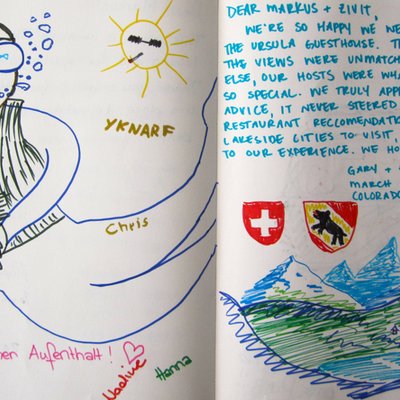 YKNARF
Chris
Aufenthalt!
Nadine
Hanna
DEAR MARKUS + ZIVIT,
WE'RE SO HAPPY WE
THE URSULA GUESTHOUSE.
THE VIEWS WERE
ELSE, OUR HOSTS WERE
SO SPECIAL. WE TRULY
ADVICE, IT NEVER STEERED
RESTAURANT
LAKESIDE CITIES TO VISIT,
TO OUR EXPERIENCE. WE
GARY +
MARCH